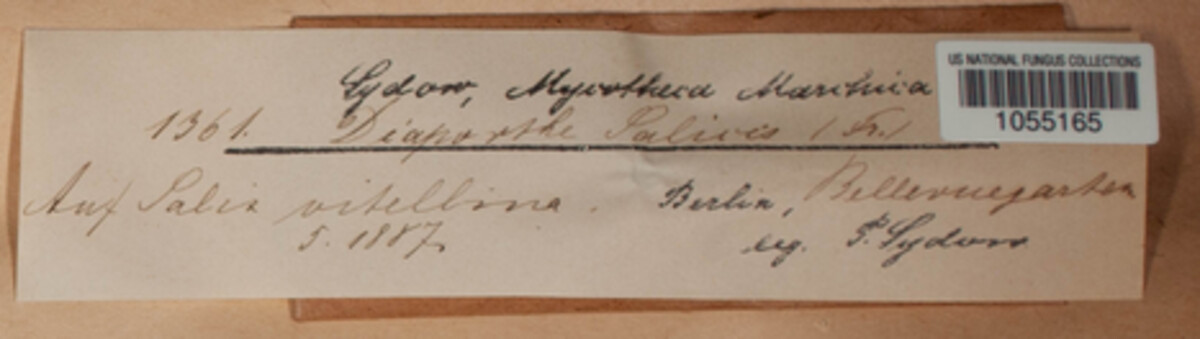 Sydow, Mycotheca Marchica
US NATIONAL FUNGUS COLLECTIONS
1055165
1361. Diaporthe Salicis (Fr.)
Auf Salix vitellina. Berlin, Bellevuegarten
5. 1887. leg. P. Sydow